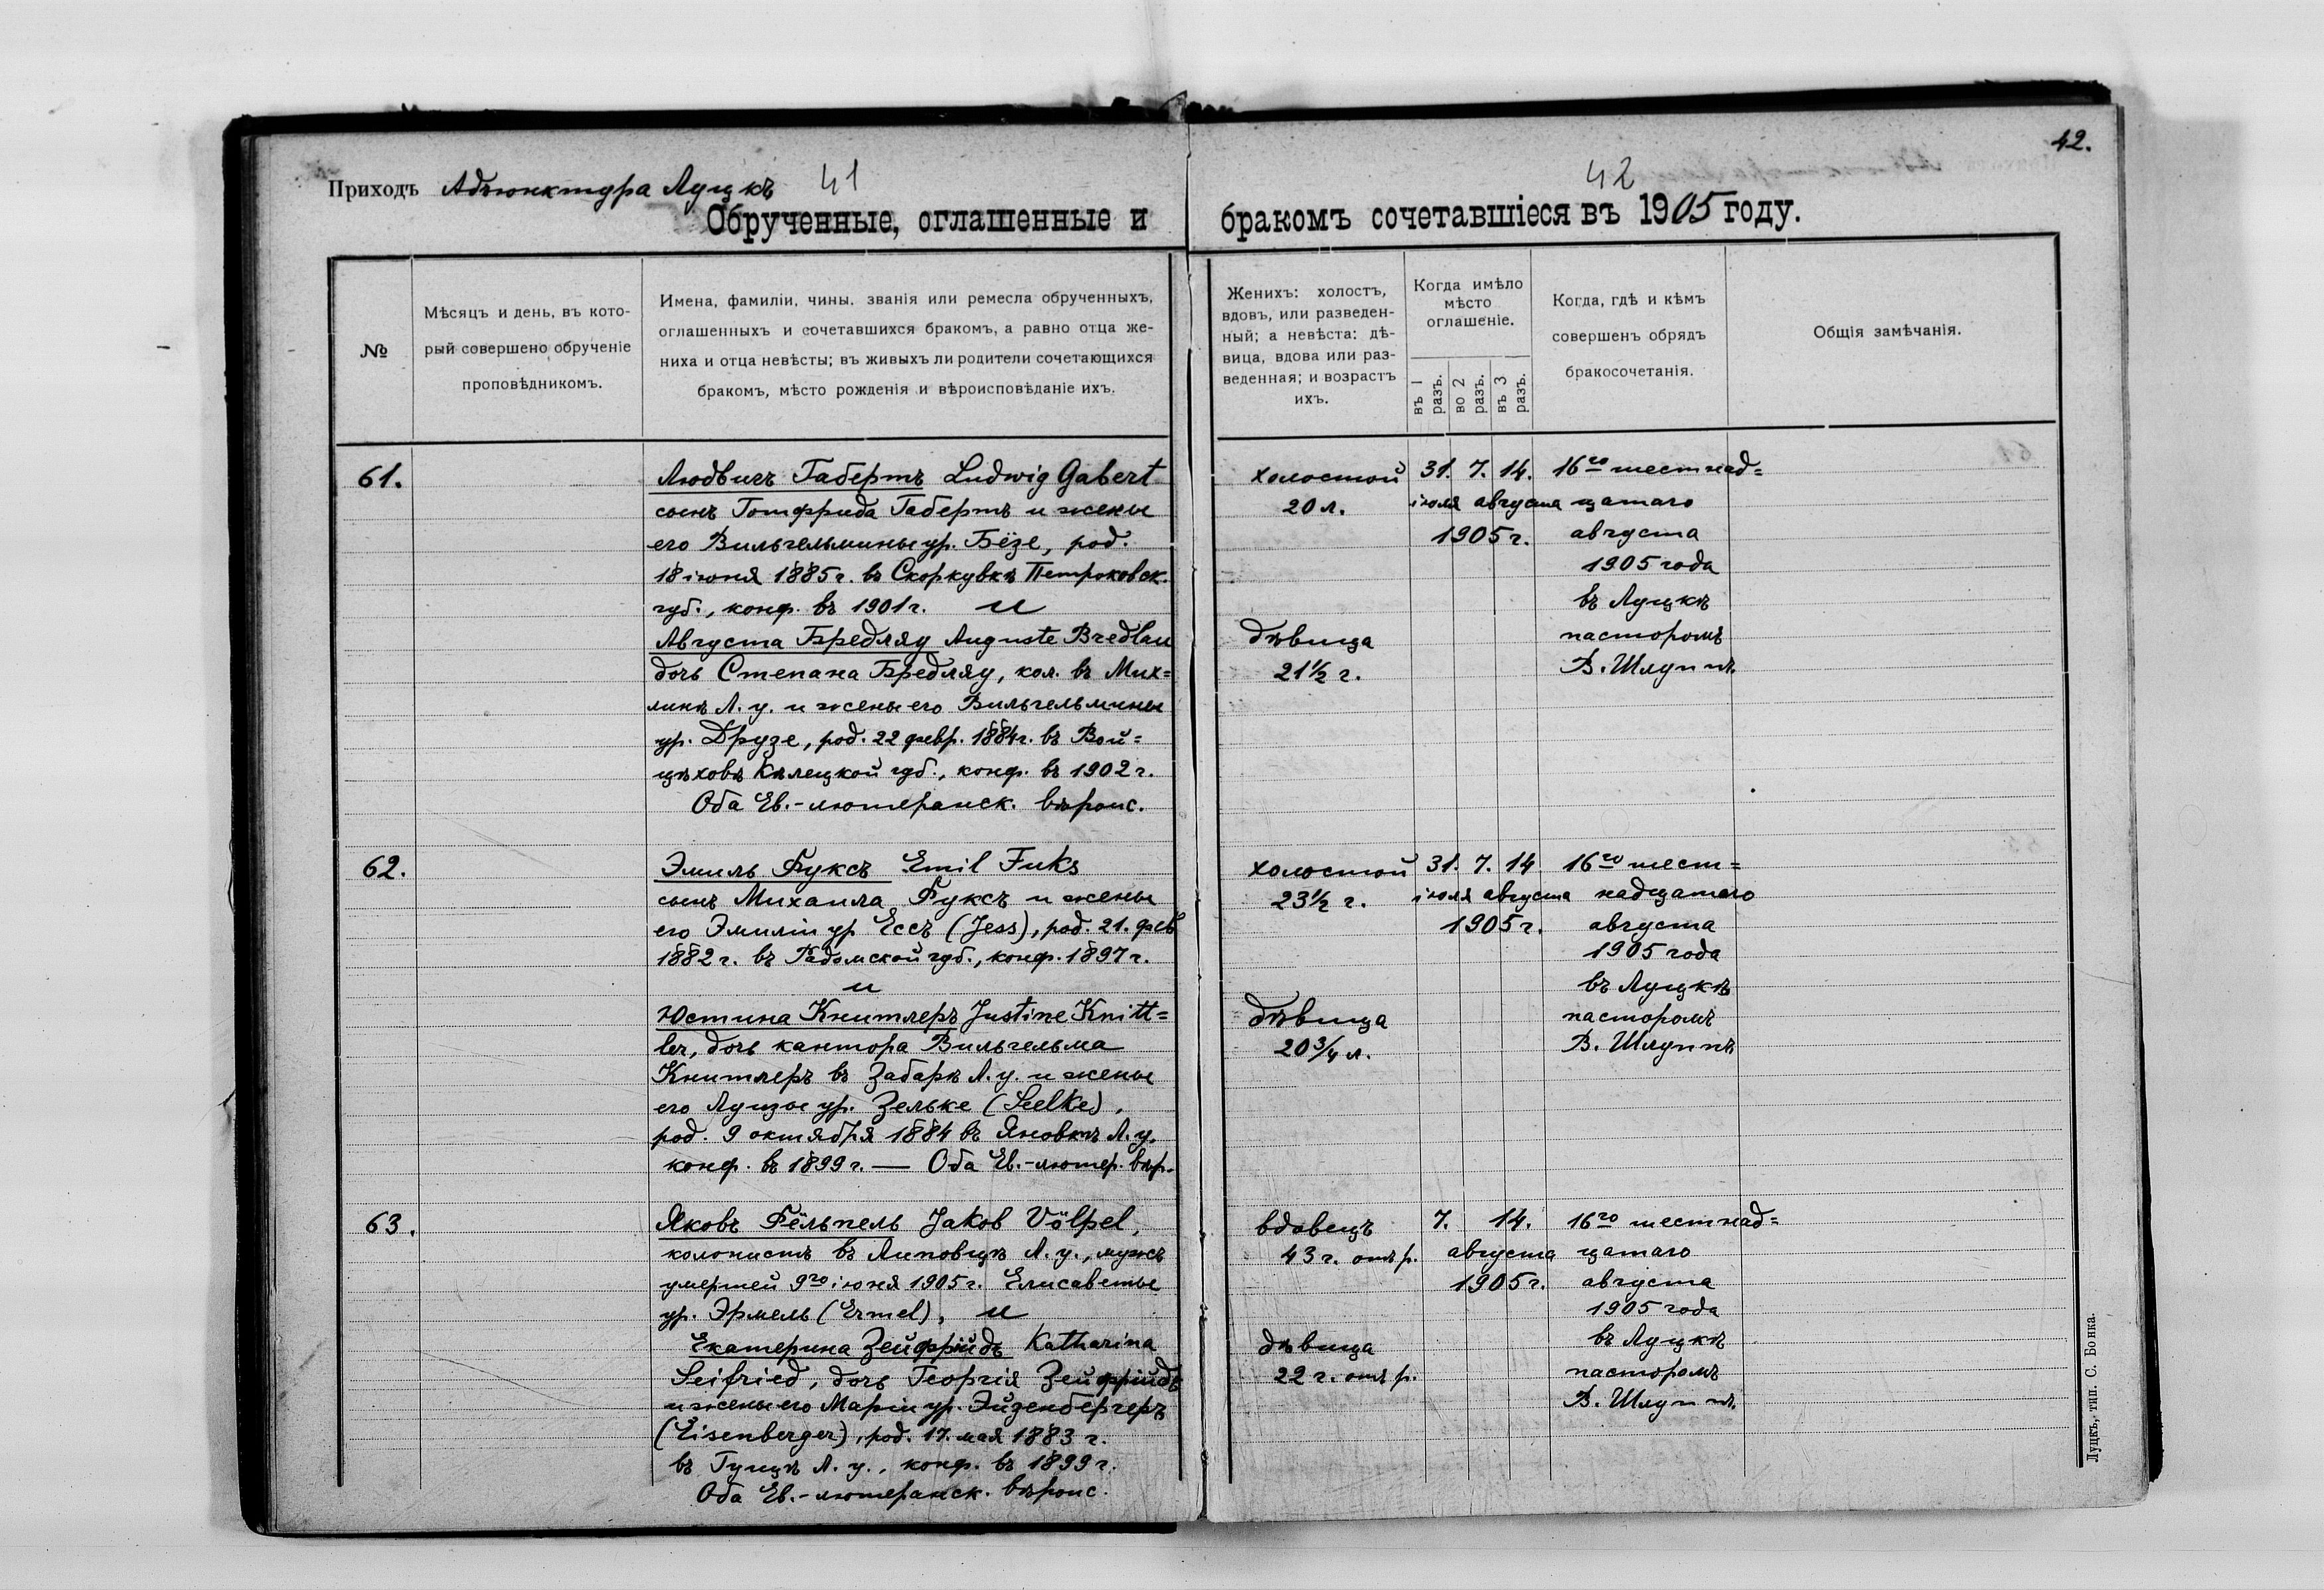 42.
Приходъ Адъюнктура Луцкъ 41
42
Обрученные, оглашенные и бракомъ сочетавшіеся въ 1905 году.
№
Мѣсяцъ и день, въ кото-
рый совершено обрученіе
проповѣдникомъ.
Имена, фамиліи, чины. званія или ремесла обрученныхъ,
оглашенныхъ и сочетавшихся бракомъ, а равно отца же-
ниха и отца невѣсты; въ живыхъ ли родители сочетающихся
бракомъ, мѣсто рожденія и вѣроисповѣданіе ихъ.
Женихъ: холостъ,
вдовъ, или разведен-
ный; а невѣста: дѣ-
вица, вдова или раз-
веденная; и возрастъ
ихъ.
Когда имѣло
мѣсто
оглашеніе.
въ 1
разъ.
во 2
разъ.
въ 3
разъ.
Когда, гдѣ и кѣмъ
совершенъ обрядъ
бракосочетанія.
Общія замѣчанія.
61.
Людвигъ Габертъ Ludwig Gabert
сынъ Готфрида Габертъ и жены
его Вильгельмины ур. Бёзе, род.
18 іюня 1885 г. въ Скоркувкѣ Петроковск.
губ., конф. въ 1901 г. и
Августа Бредляу Auguste Bredlau
дочь Степана Бредляу, кол. въ Мих=
линѣ Л. у. и жены его Вильгельмины
ур. Друзе, род. 22 февр. 1884 г. въ Вой=
цѣховѣ Кѣлецкой губ., конф. въ 1902 г.
Оба Ев.-лютеранск. вѣроис.
холостой
20 л.
дѣвица
21½ г.
31. 7. 14.
іюля августа
1905 г.
16го шестнад=
цатаго
августа
1905 года
въ Луцкѣ
пасторомъ
В. Шлуппъ
62.
Эмиль Фуксъ Emil Fuks
сынъ Михаила Фуксъ и жены
его Эмиліи ур Ессъ (Jess), род. 21. фев
1882 г. въ Радомской губ., конф. 1897 г.
и
Юстина Книтлеръ Justine Knitt=
ler, дочь кантора Вильгельма
Книтлеръ въ Забарѣ Л. у. и жены
его Луизы ур. Зельке (Seelke),
род. 9 октября 1884 въ Яновкѣ Л. у.
конф. въ 1899 г. — Оба Ев.-лютер. вѣр.
холостой
23½ г.
дѣвица
20¾ л.
31. 7. 14
іюля августа
1905 г.
16го шест=
надцатаго
августа
1905 года
въ Луцкѣ
пасторомъ
В. Шлуппъ
63.
Яковъ Фёльпель Jakob Völpel,
колонистъ въ Липовцѣ Л. у., мужъ
умершей 9го іюня 1905 г. Елисаветы
ур. Эрмель (Ermel), и
Екатерина Зейфрійдъ Katharina
Seifried, дочь Георгія Зейфрійдъ
и жены его Маріи ур. Эйзенбергеръ
(Eisenberger), род. 17. мая 1883 г.
въ Гущѣ Л. у., конф. въ 1899 г.
Оба Ев.-лютеранск. вѣроис.
вдовецъ
43 г. отъ р.
дѣвица
22 г. отъ р.
7. 14.
августа
1905 г.
16го шестнад=
цатаго
августа
1905 года
въ Луцкѣ
пасторомъ
В. Шлуппъ
Луцкъ, тип. С. Бонка.